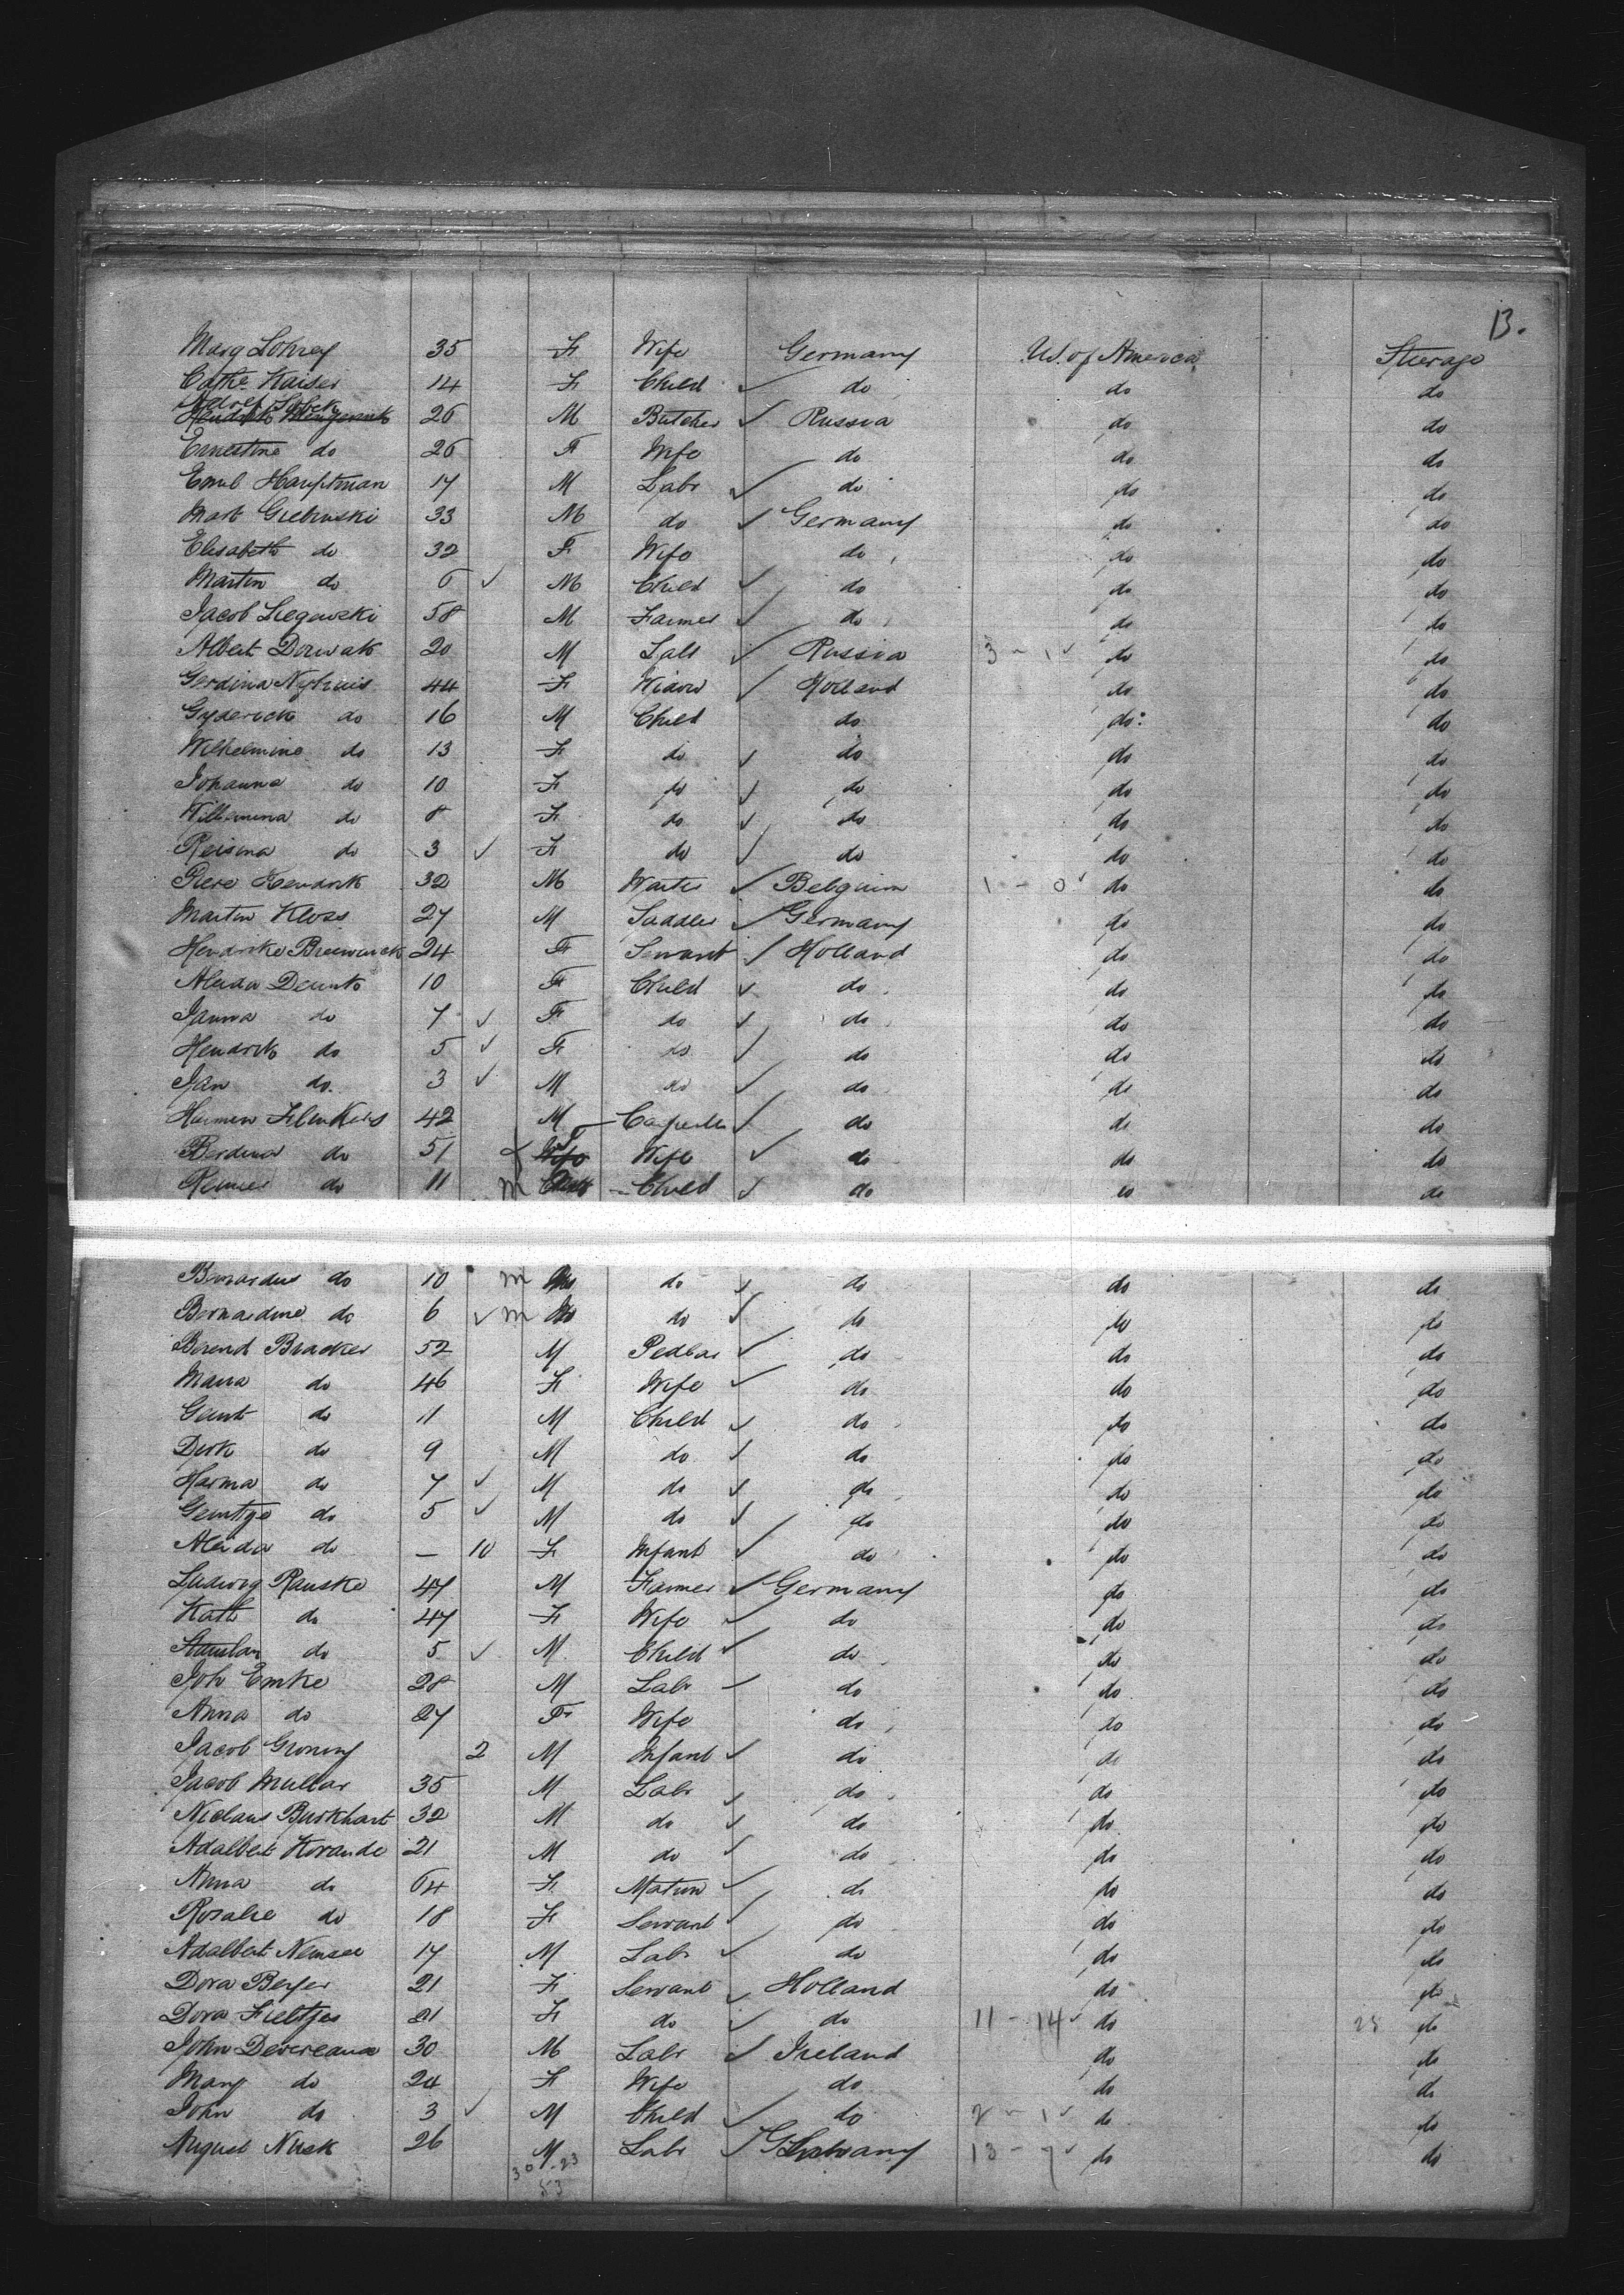 13.
Marg Lohrey 35 F Wife Germany U.S. of America Sterage
Cathe Kaiser 14 F Child ✓ do do do
26 M Butcher ✓ Russia do do
Ernestine do 26 F Wife do do do
Emil Hauptman 17 M Labr ✓ do do do
Mart 33 M do ✓ Germany do do
Elisabeth do 32 F Wife do do do
Martin do 6 ✓ M Child ✓ do do do
Jacob 58 M Farmer ✓ do do do
Albert 20 M Labr ✓ Russia 3 - 1 ✓ do do
Gerdina Nyhuis 44 F Widow ✓ Holland do do
do 16 M Child do do do
Wilhelmine do 13 F do ✓ do do do
Johanna do 10 F do ✓ do do do
Willemina do 8 F do ✓ do do do
Reisina do 3 ✓ F do ✓ do do do
Piere Hendrik 32 M Waiter ✓ Belgium 1 - 0 ✓ do do
Martin Kloss 27 M Saddler ✓ Germany do do
Hendrike 24 F Servant ✓ Holland do do
Aleida 10 F Child ✓ do do do
Janna do 7 ✓ F do ✓ do do do
Hendrik do 5 ✓ F do ✓ do do do
Jan do 3 ✓ M do ✓ do do do
Harmen 42 M ✓ do do do
Berdina do 51 F Wife ✓ do do do
do 11 M Child ✓ do do do
Bernardus do 10 M do ✓ do do do
Bernardine do 6 ✓ M do ✓ do do do
Berend Bracker 52 M Pedlar ✓ do do do
Maria do 46 F Wife ✓ do do do
do 11 M Child ✓ do do do
Derk do 9 M do ✓ do do do
Harma do 7 ✓ M do ✓ do do do
do 5 ✓ M do ✓ do do do
Aleida do — 10 F Infant ✓ do do do
Ludwig Rauske 47 M Farmer ✓ Germany do do
Kath do 47 F Wife ✓ do do do
Stanislaw do 5 ✓ M Child ✓ do do do
Joh Emke 28 M Labr ✓ do do do
Anna do 27 F Wife do do do
Jacob Groning 2 M Infant ✓ do do do
Jacob Mullar 35 M Labr ✓ do do do
Niclaus Burkhart 32 M do ✓ do do do
Adalbert Korande 21 M do ✓ do do do
Anna do 64 F Matron ✓ do do do
Rosalie do 18 F Servant ✓ do do do
Adalbert 17 M Labr ✓ do do do
Dora 21 F Servant ✓ Holland do do
Dora Fieltjes 21 F do ✓ do 11 - 14 ✓ do 25 do
John Devereaux 30 M Labr ✓ Ireland do do
Mary do 24 F Wife do do do
John do 3 ✓ M Child ✓ do 2 - 1 ✓ do do
August Nusk 26 M Labr ✓ Germany 13 - 7 ✓ do do
30 - 23
53